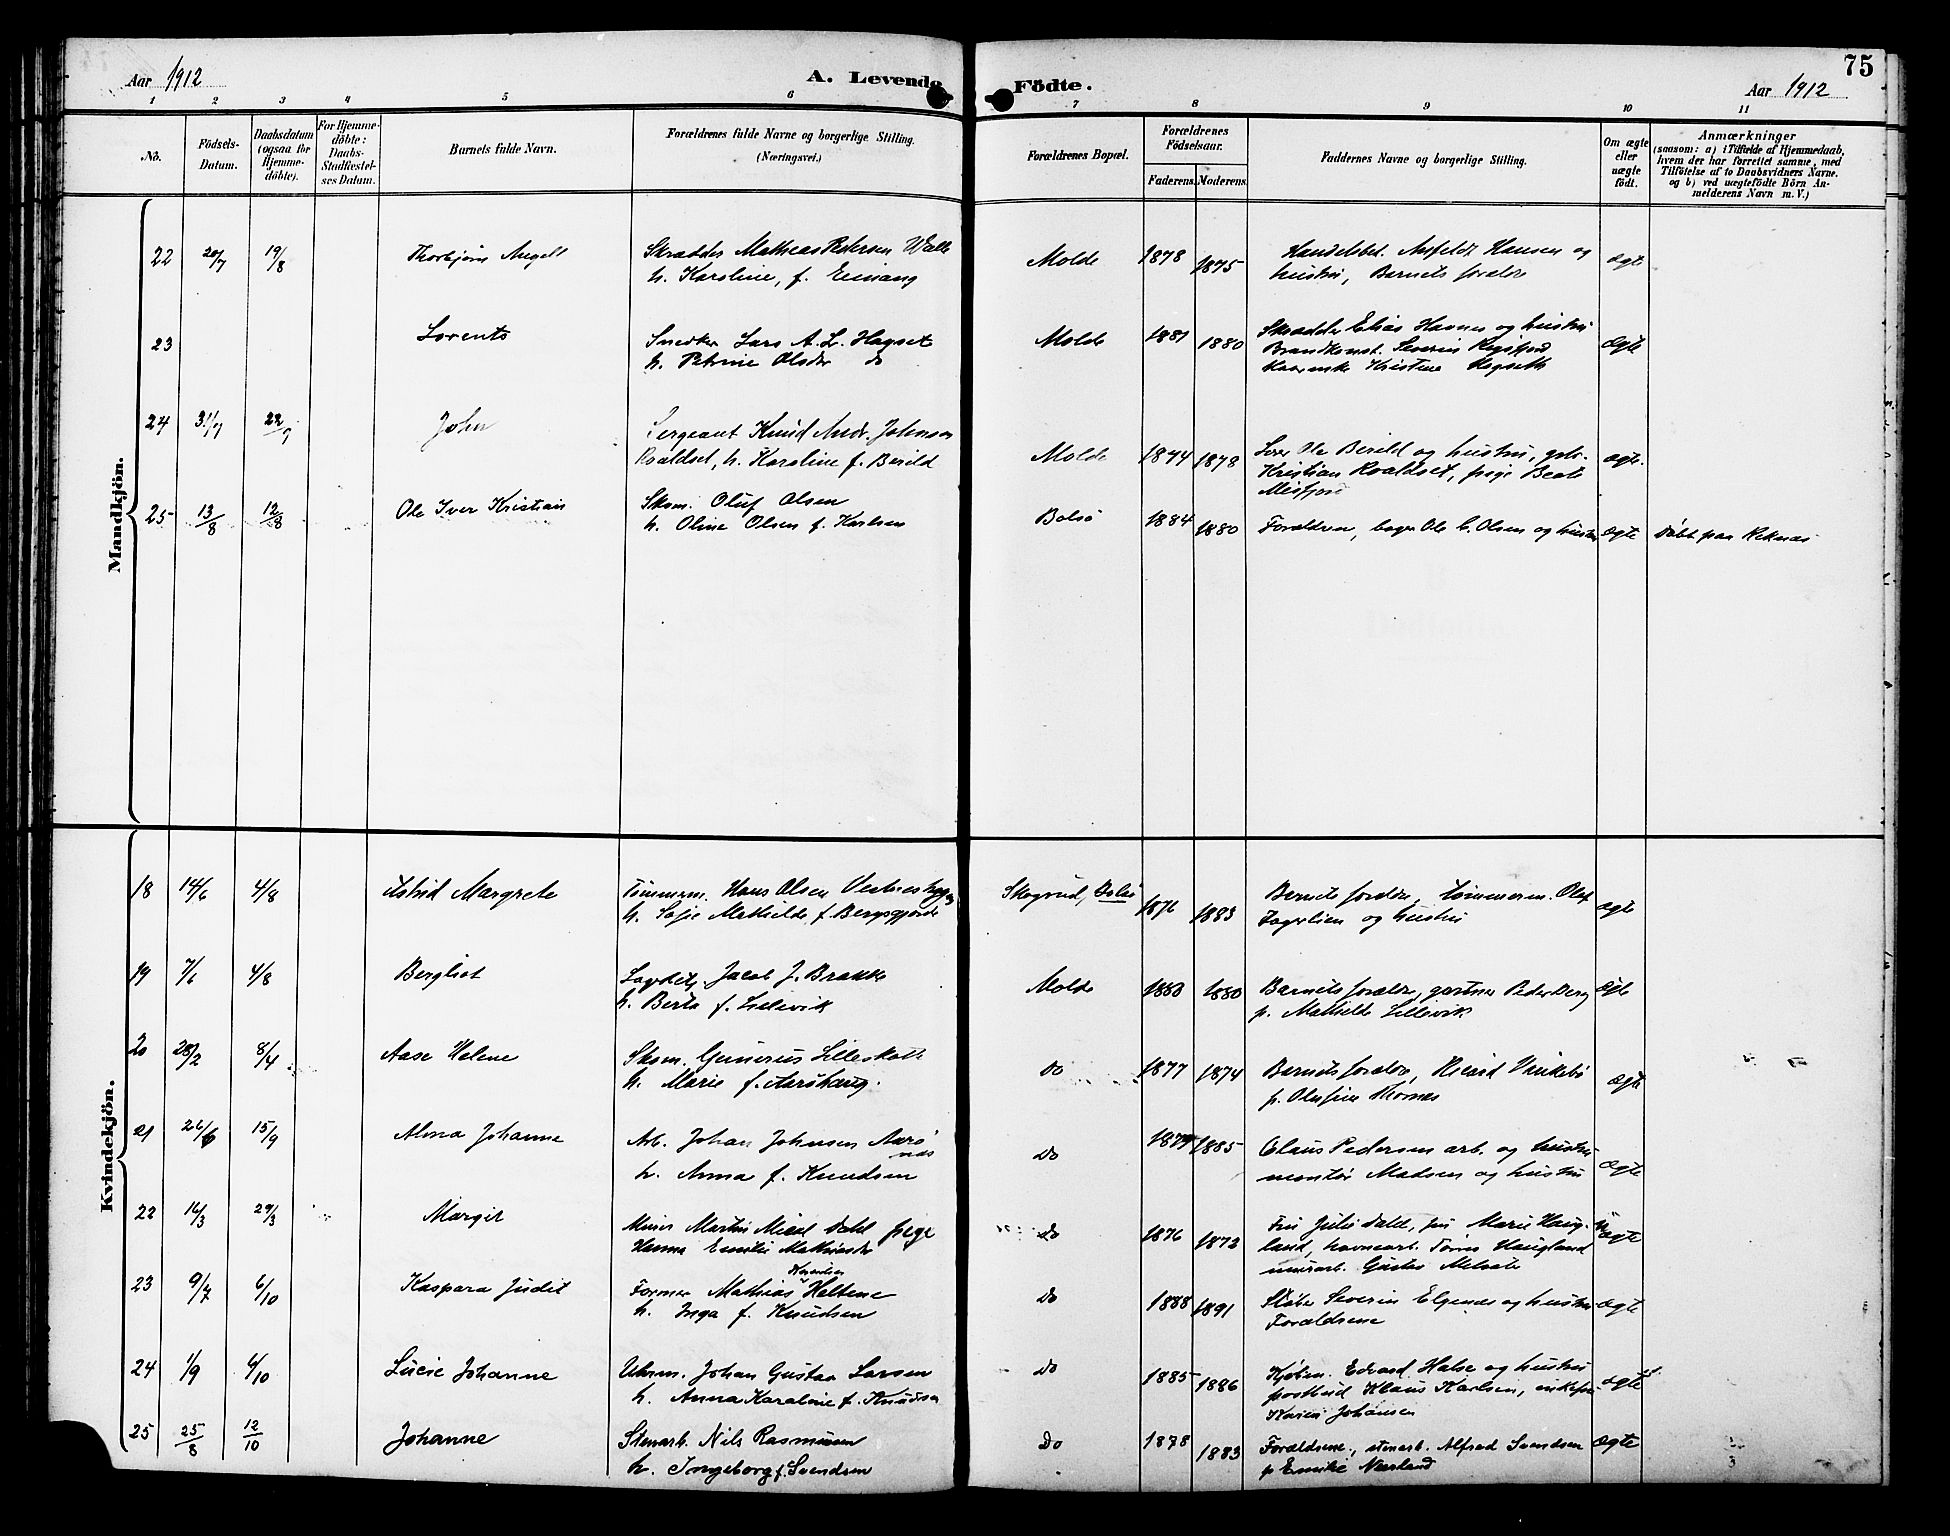 75
Aar 1912
A. Levende
Födte.
Aar 1912
1 2 3 4 5 6 7 8 9 10 11
No.
Födsels-
Datum.
Daabsdatum
(ogsaa for
Hjemme-
döbte).
For Hjemme-
döbte:
Daabs-
Stadfæstel-
ses Datum.
Barnets fulde Navn.
Forældrenes fulde Navne og borgerlige Stilling.
(Næringsvei.)
Forældrenes Bopæl.
Forældrenes
Födselsaar.
Faderens. Moderens.
Faddernes Navne og borgerlige Stilling.
Om ægte
eller
uægte
födt.
Anmærkninger
(saasom: a) i Tilfælde af Hjemmedaab,
hvem der har forrettet samme, med
Tilföielse af to Daabsvidners Navne.
og b) ved uægtefödte Börn An-
melderens Navn m. V.)
Mandkjön.
22 20/7 19/8 Thorbjörn Angell
Skrædder Mathias Petersen
h. Karoline, f.
Molde 1878 1875
Hansen og
hustru, Barnets forældre
ægte
23 Lorents
Snedker Lars A. L. Hagset
h. Petrine Olsdtr do
Molde 1881 1880
Skrædder Elias Havnes og hustru
Severin
Kristine
ægte
24 31/7 22/9 John
Sergeant Knud Andr. Johnsen
h. Karoline f. Berild
Molde 1874 1878
Ole Berild og hustru, gbr.
Kristian Roaldset, pige Beate
Misfjord
ægte
25 13/8 12/8 Ole Iver Kristian
Skom. Oluf Olsen
h. Oline Olsen f. Karlsen
Bolsö 1884 1880
Forældrene, Ole C. Olsen og hustru
ægte Döbt paa Reknæs
Kvindekjön.
18 14/6 4/8 Astrid Margrete
Tömmerm. Hans Olsen
h. Mathilde f.
Bolsö 1876 1883
Barnets forældre, tömmerm. Olaf
Fagerlien og hustru
ægte
19 7/6 4/8 Bergliot
Jacob J. Brakke
h. Berta f. Lillevik
Molde 1880 1880
Barnets forældre, gartner Peder Berg
p. Mathilde Lillevik
ægte
20 28/2 8/4 Aase Helene
Skom. Gunerus
h. Marie f. Aarshaug.
Do 1877 1874
Barnets forældre, Rikard
p. Olufine Thornes
ægte
21 26/6 15/9 Alma Johanne
Arb. Johan Johnsen Aarö
næs
h. Anna f. Knudsen
Do 1885
Claus Pedersen arb. og hustru
montör Madsen og hustru
ægte
22 16/3 29/3 Margit
Martin Dahl pige
Hanna Emilie
Do 1876 1873
Fru Julie Dahl, fru Marie Haug-
land, havnearb. Haugland
murarb. Gustav
uægte
23 9/7 6/10 Kaspara Judit
Former Mathias Heltene
h. Inga f. Knudsen
Do 1888 1891
Stöber Severin Elgenæs og hustru
Forældrene
ægte
24 1/9 6/10 Lucie Johanne
Uhrm. Johan Gustav Larsen
h. Anna Karoline f. Knudsen
Do 1885 1886
Kjöbm. Edvard Halse og hustru
postbud Klaus Karlsen, enkefru
Karen Johansen
ægte
25 25/8 12/10 Johanne
Stenarb. Nils Rasmussen
h. Ingeborg f. Svendsen
Do 1878 1883
Forældrene, stenarb. Alfred Svendsen
p Emilie Nærland
ægte